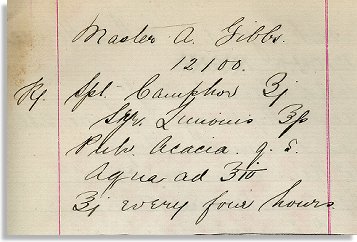 Master A. Gibbs.
12100.
Rx. Spt. Camphor ʒj
Syr. Limonis ʒss
Pulv. Acacia q. s.
Aqua ad ʒiii
ʒj every four hours